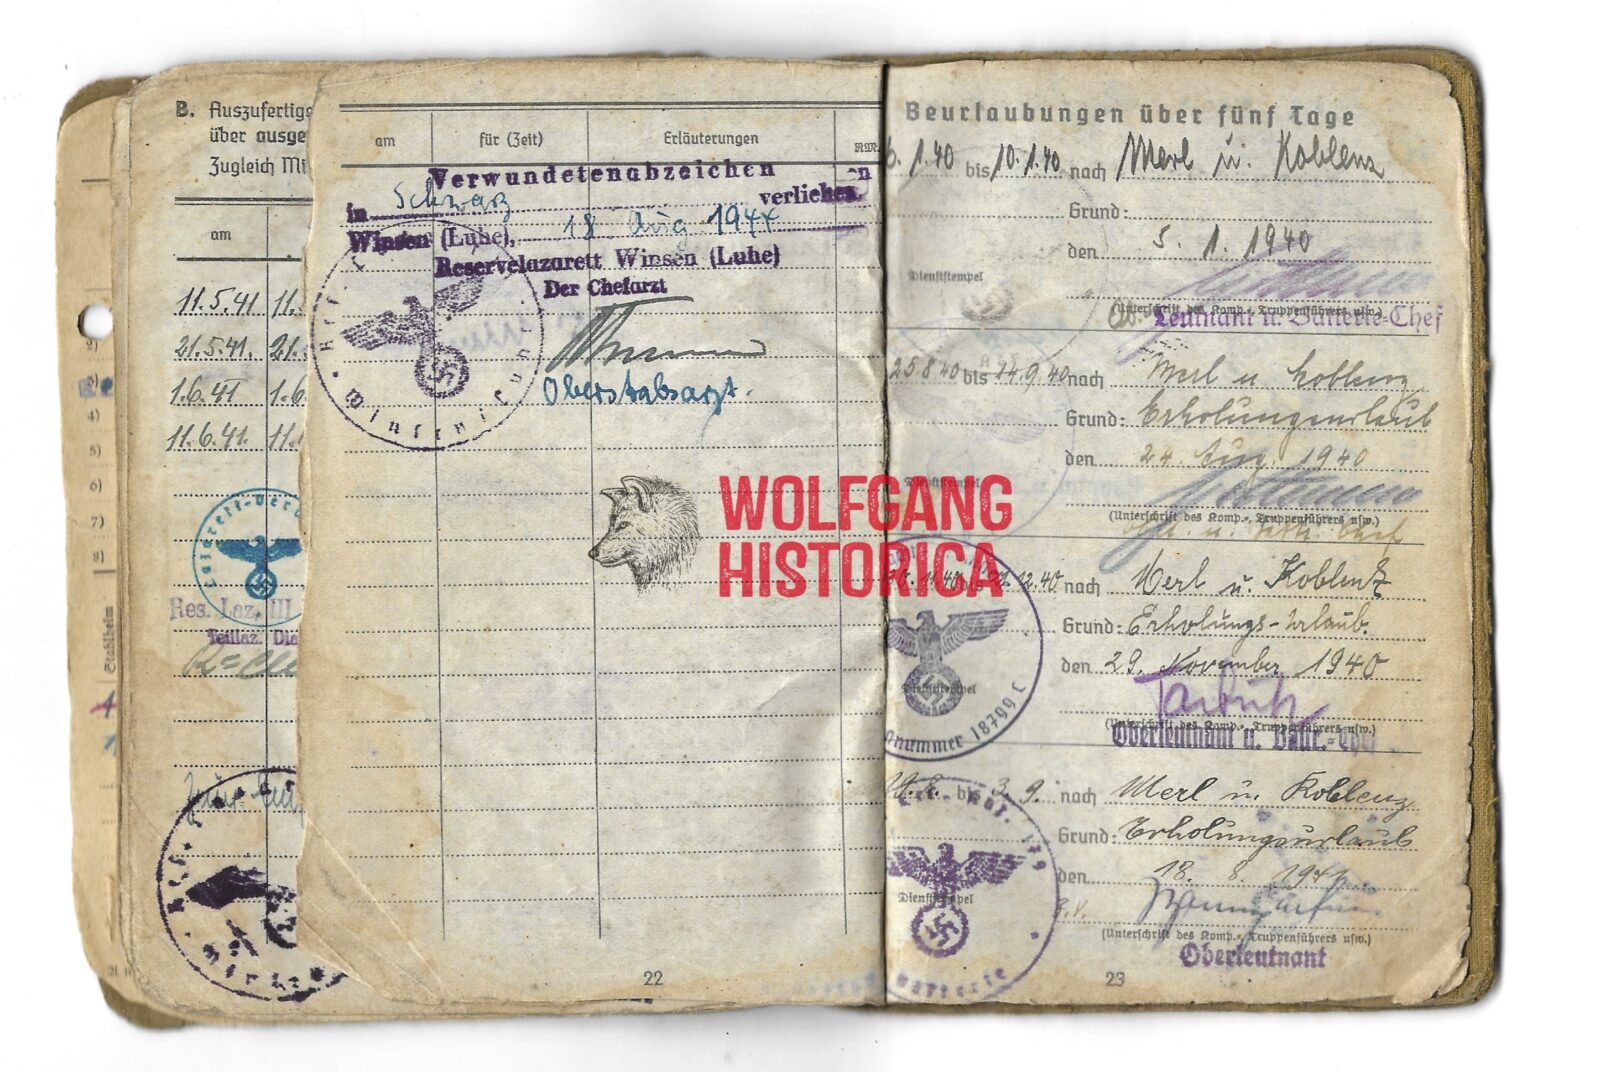 B. Auszufertig
über ausge
Zugleich Mi
am
11.5.41 11.
21.5.41. 21.
1.6.41 1.6
11.6.41. 11.
2)
4)
5)
6)
7)
8)
Stahlhelm
Res. Laz. III
Teillaz. Dia
am
für (Zeit)
Erläuterungen
RM.
Verwundetenabzeichen
in Schwarz verliehen
Winsen (Luhe), 18 Aug 1944
Reservelazarett Winsen (Luhe)
Der Chefarzt
Oberstabsarzt.
WOLFGANG
HISTORICA
22
Beurlaubungen über fünf Tage
6. 1. 40 bis 10. 1. 40 nach Merl u. Koblenz
Grund:
den 5. 1. 1940
Dienststempel
(Unterschrift des Komp.-, Truppenführers usw.)
Leutnant u. Batterie-Chef
25 8 40 bis 14. 9. 40 nach Merl u Koblenz
Grund: Erholungsurlaub
den 24. Aug 1940
Dienststempel
(Unterschrift des Komp.-, Truppenführers usw.)
11.40 12.40 nach Merl u. Koblenz
Grund: Erholungs-Urlaub.
den 29. November 1940
Dienststempel
nummer 18799 C
(Unterschrift des Komp.-, Truppenführers usw.)
Oberleutnant u. Battr.-Chef
bis 3. 9. nach Merl u. Koblenz
Grund: Erholungsurlaub
den 18. 8.
Dienststempel
(Unterschrift des Komp.-, Truppenführers usw.)
Oberleutnant
23